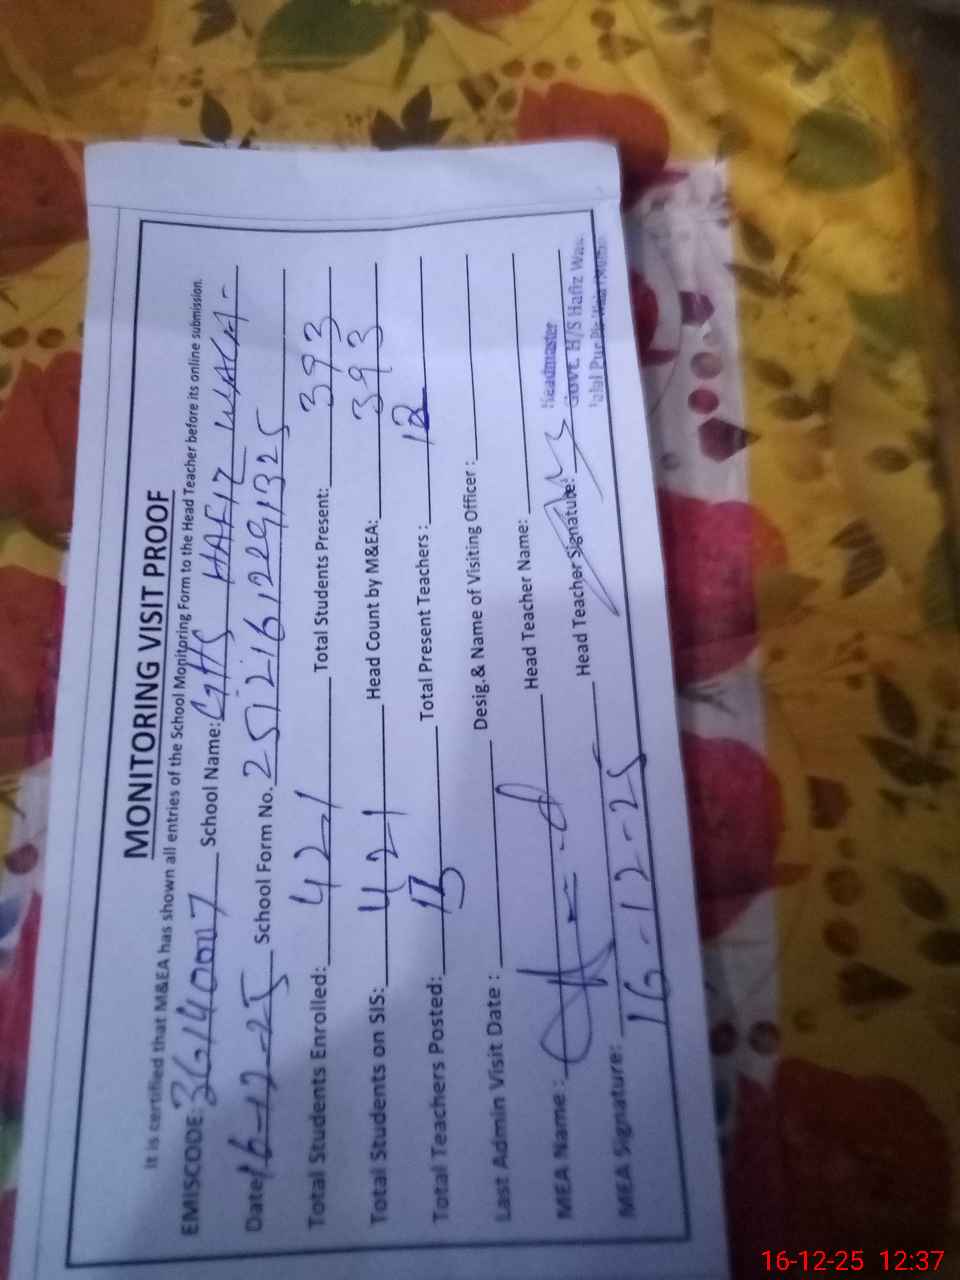 MONITORING VISIT PROOF
It is certified that M&EA has shown all entries of the School Monitoring Form to the Head Teacher before its online submission.
EMISCODE: 36140007 School Name: GHS HAFIZ WALA -
Date 16-12-25 School Form No. 25121612291325
Total Students Enrolled: 421 Total Students Present: 393
Total Students on SIS: 421 Head Count by M&EA: 393
Total Teachers Posted: 13 Total Present Teachers: 12
Last Admin Visit Date : Desig.& Name of Visiting Officer :
MEA Name : Head Teacher Name:
MEA Signature: Head Teacher Signature:
16-12-25
Headmaster
Govt. H/S Hafiz Wala
Jalal Pur Pir Wala
16-12-25 12:37